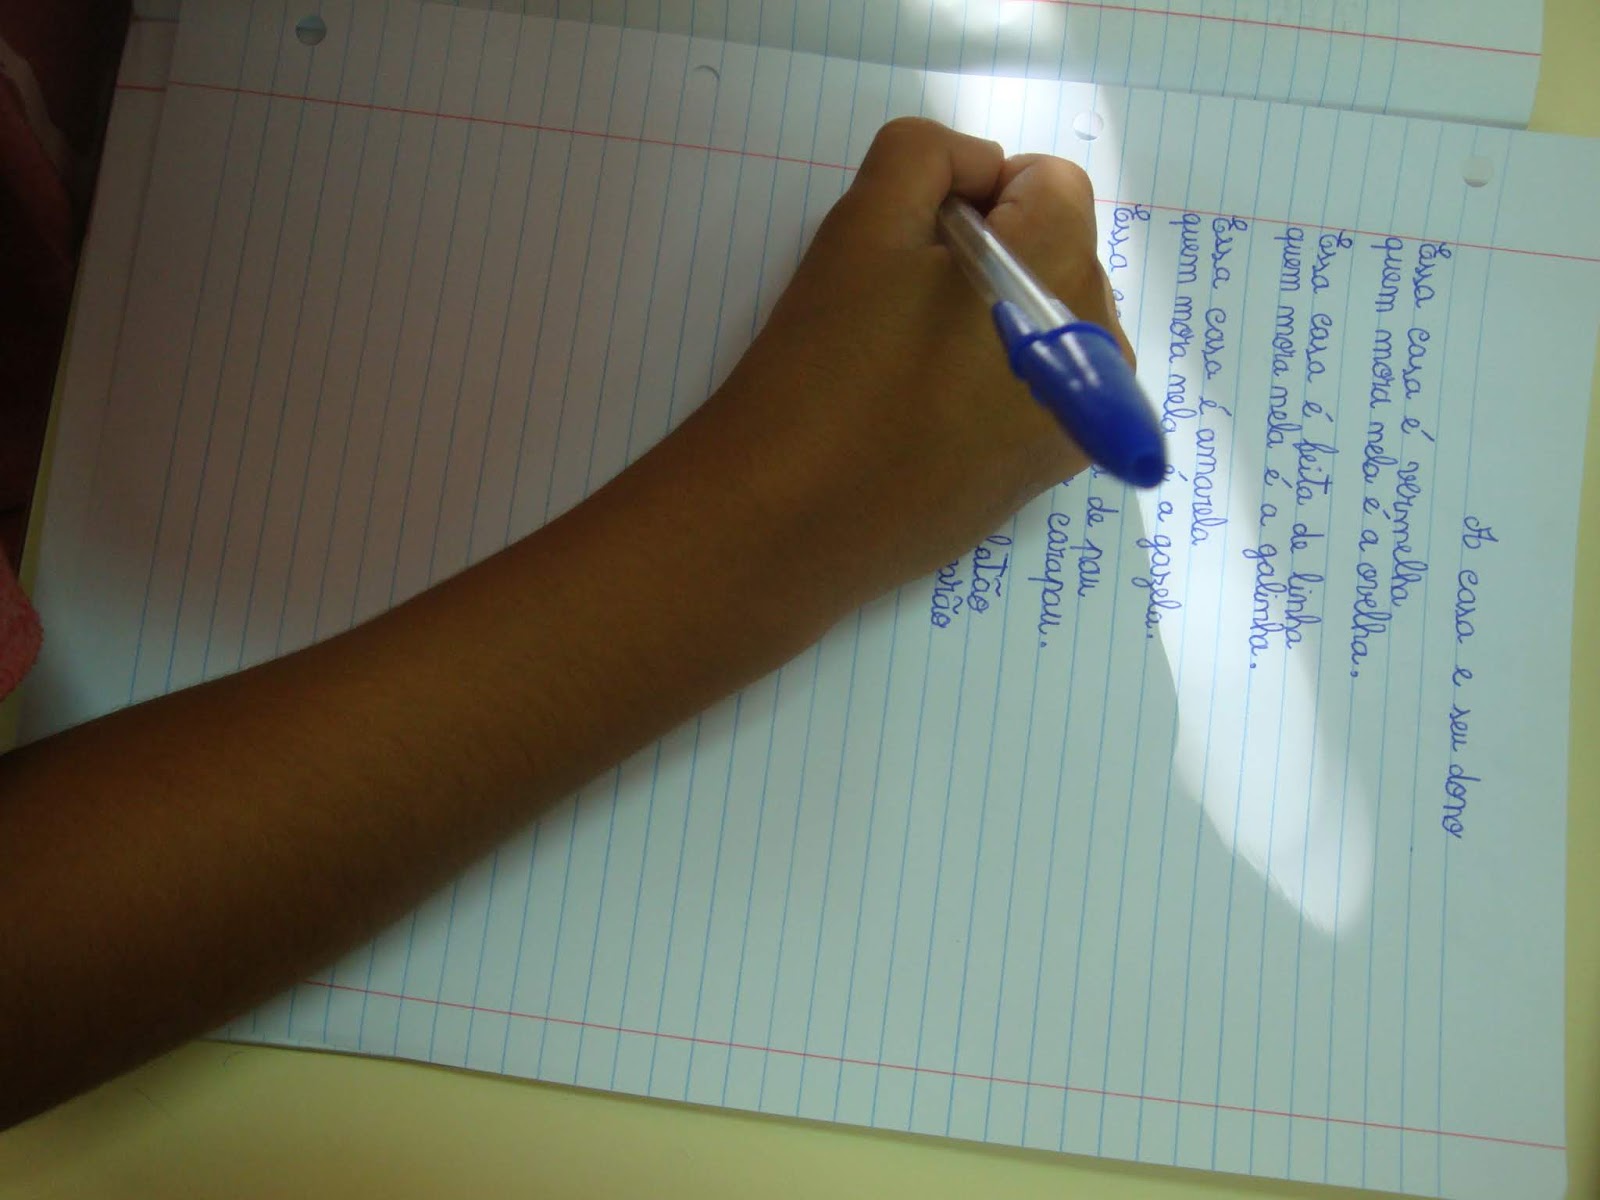 A casa e seu dono
Essa casa é vermelha
quem mora nela é a ovelha.
Essa casa é feita de linha
quem mora nela é a galinha.
Essa casa é amarela
quem mora nela é a gazela.
Essa de pau
carapau.